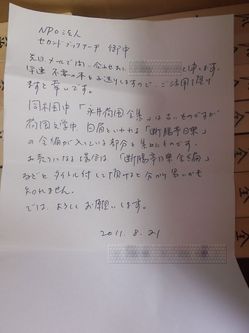 NPO法人
セカンドブックアーチ 御中
先日メールで問い合わせました と申します。
早速 不要の本をお送りしますので、ご活用下さり
ますと幸いです。
同梱中「永井荷風全集」は古いものですが
荷風文学中 白眉といわれる「断腸亭日乗」
の全編が入っている部分を集めたものです。
お売りになる場合は、「断腸亭日乗全編」
などとタイトル付して頂けると分かり易いかも
知れません。
では、よろしくお願いします。
2011.8.21